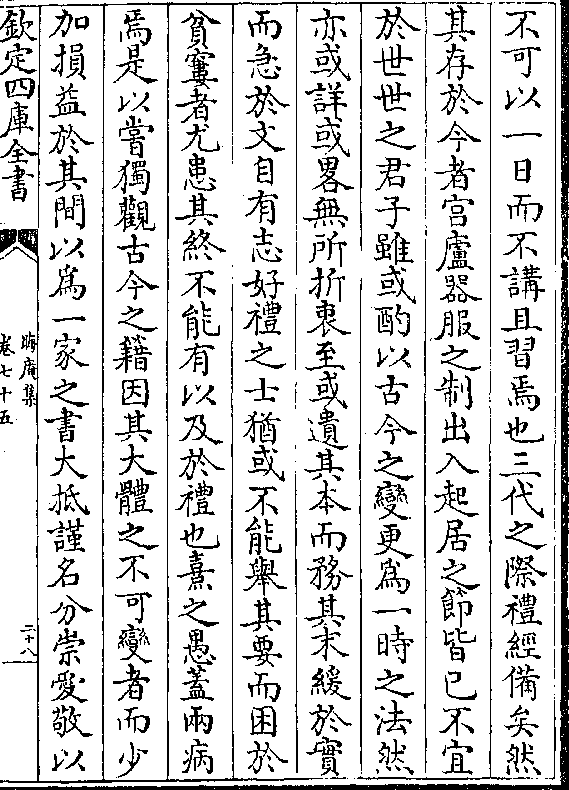 不可以一日而不講且習焉也三代之際禮經備矣然
其存於今者宫廬器服之制出入起居之節皆已不宜
於世世之君子雖或酌以古今之變更為一時之法然
亦或詳或畧無所折衷至或遺其本而務其末緩於實
而急於文自有志好禮之士猶或不能舉其要而困於
貧窶者尤患其終不能有以及於禮也熹之愚蓋兩病
焉是以嘗獨觀古今之籍因其大體之不可變者而少
加損益於其間以為一家之書大抵謹名分崇愛敬以
欽定四庫全書
晦庵集
卷七十五
二十八